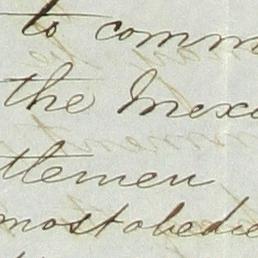 to comm
the Mexi
tlemen
most obedie